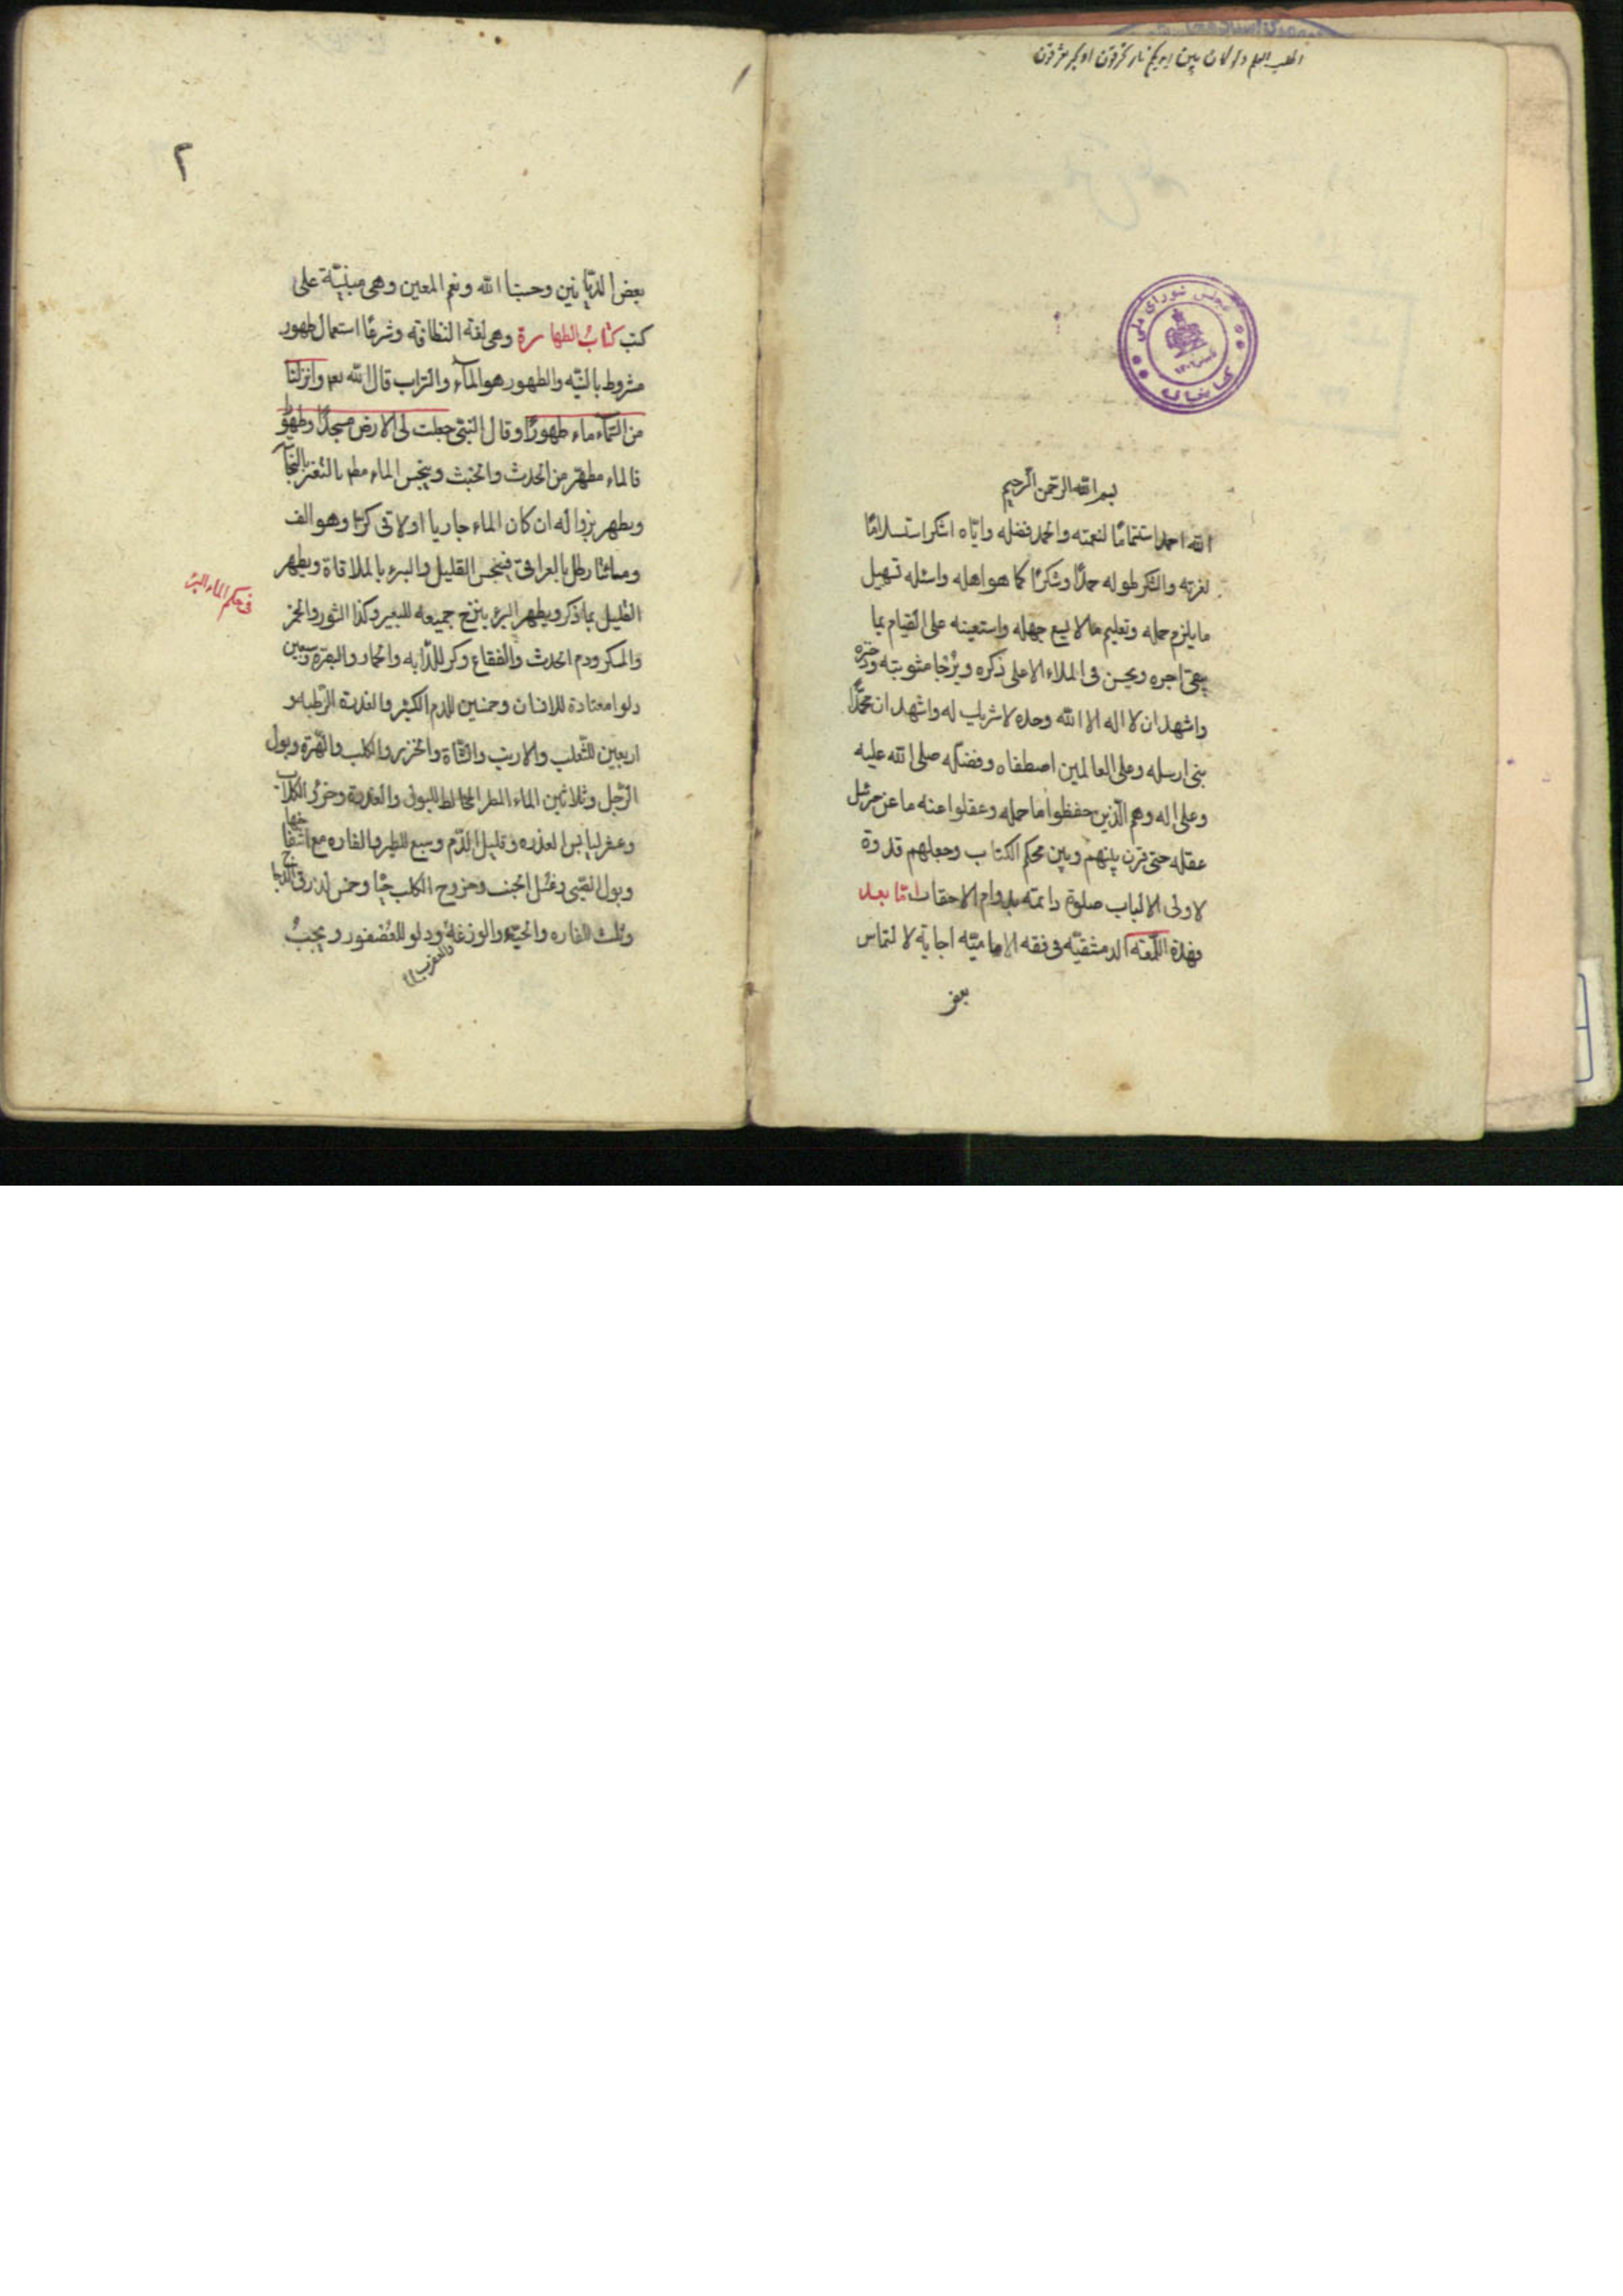 اطلب العلم ولو كان بين
مجلس شورای ملی
کتابخانه
بسم الله الرحمن الرحيم
الله احمد استتماما لنعمته والحمد فضله واياه اشكر استسلاما
لعزته والشكر طوله حمدا وشكرا كما هو اهله واسئله تسهيل
ما يلزم حمله وتعليم ما لا يسع جهله واستعينه على القيام بما
يبقى اجره ويحسن فى الملاء الاعلى ذكره ويرجا مثوبته وذخره
واشهد ان لا اله الا الله وحده لا شريك له واشهد ان محمدا
نبى ارسله وعلى العالمين اصطفاه وفضله صلى الله عليه
وعلى اله وهم الذين حفظوا ما حمله وعقلوا عنه ما عن جبرئيل
عقله حتى قرن بينهم وبين محكم الكتاب وجعلهم قدوة
لاولى الالباب صلوة دائمة بدوام الاحقاب اما بعد
فهذه اللمعة الدمشقيه فى فقه الاماميه اجابة لالتماس
بعض
٢
بعض الديانين وحسبنا الله ونعم المعين وهى مبنية على
كتب كتاب الطهارة وهى لغة النظافة وشرعا استعمال طهور
مشروط بالنيه والطهور هو الماء والتراب قال الله تعم وانزلنا
من السماء ماء طهورا وقال النبى جعلت لى الارض مسجدا وطهورا
فالماء مطهر من الحدث والخبث وينجس الماء مطم بالتغير بالنجاسة
ويطهر بزواله ان كان الماء جاريا او لاقى كرا وهو الف
ومائتا رطل بالعراقى فينجس القليل والبئر بالملاقاة ويطهر
فى حكم الماء البئر
القليل بما ذكر ويطهر البئر بنزح جميعه للبعير وكذا الثور والخمر
والمسكر ودم الحدث والفقاع وكر للدابه والحمار والبقرة وسبعين
دلوا معتادة للانسان وخمسين للدم الكثير والعذرة الرطبه و
اربعين للثعلب والارنب والشاة والخنزير والكلب والهرة وبول
الرجل وثلاثين الماء المطر المخالط للبول والعذرة وخرؤ الكلاب
وعشر ليابس العذره وقليل الدم وسبع للطير والفاره مع انتفاخها
وبول الصبى وغسل الجنب وخروج الكلب حيا وخمس لذرق الدجاج
وثلث للفاره والحيه والوزغة ودلو للعصفور ويجب
والعقرب